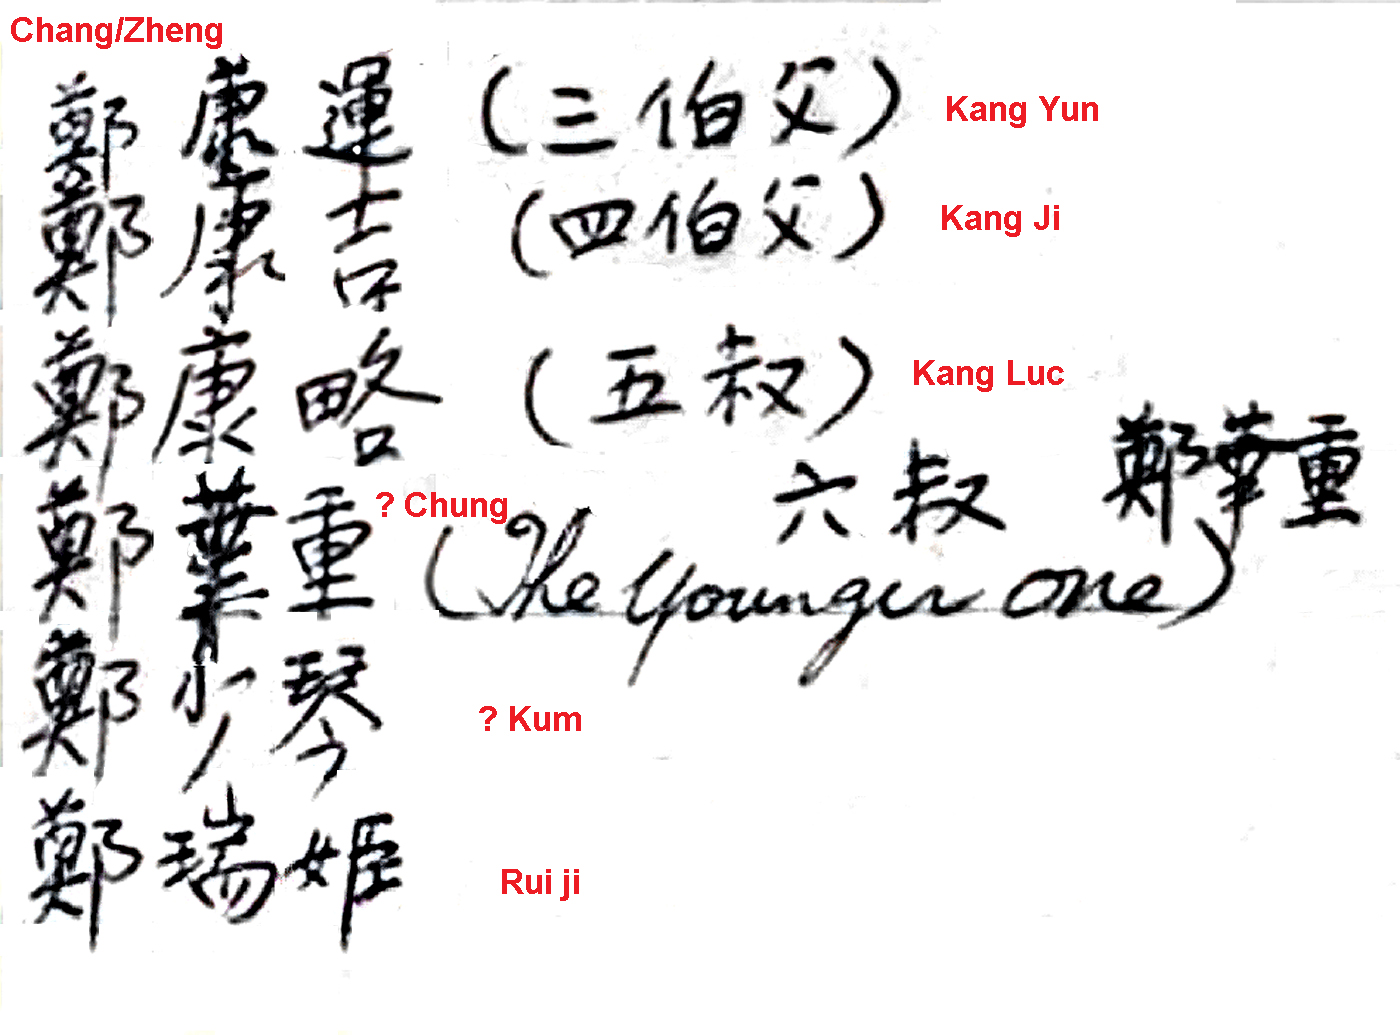 Chang/Zheng
鄭康運 (三伯父) Kang Yun
鄭康吉 (四伯父) Kang Ji
鄭康略 (五叔) Kang Luc
六叔 鄭華重
鄭華重 ? Chung (The younger one)
鄭少琴 ? Kum
鄭瑞姬 Rui ji